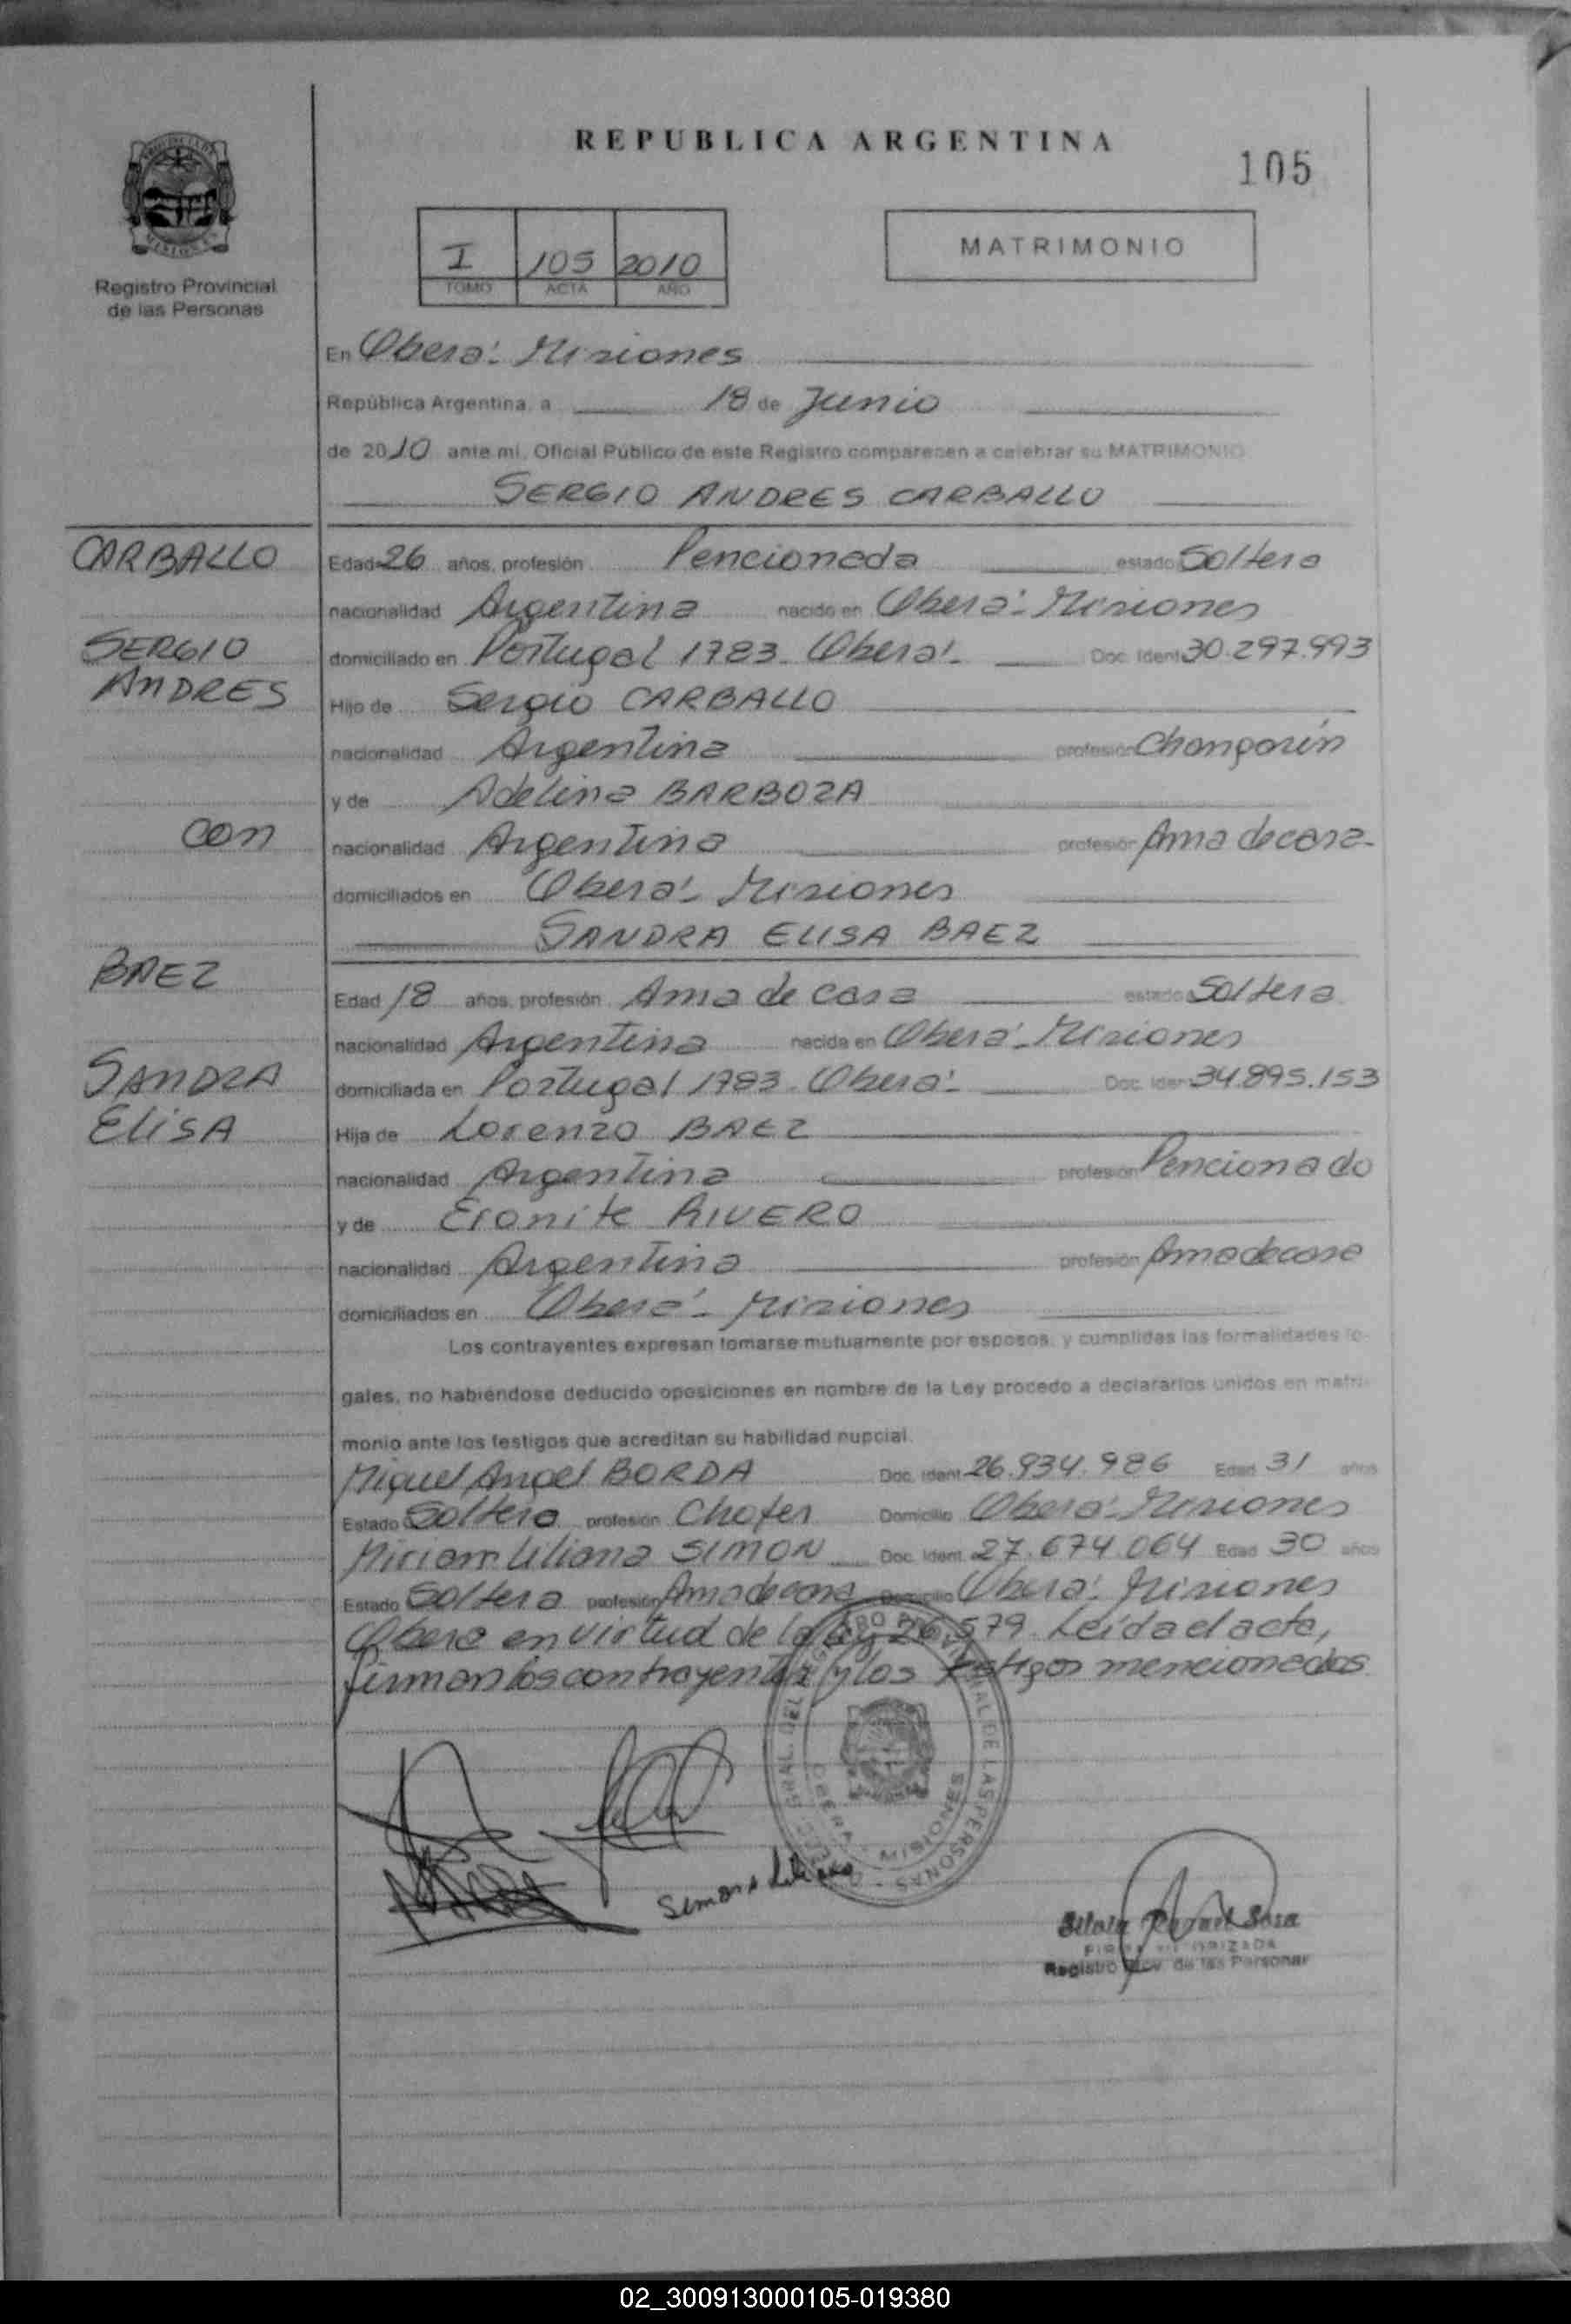 REPUBLICA ARGENTINA
105
Registro Provincial
de las Personas
I 105 2010
TOMO ACTA AÑO
MATRIMONIO
En Oberá - Misiones
República Argentina, a 18 de Junio
de 2010 ante mi, Oficial Público de este Registro comparecen a celebrar su MATRIMONIO
SERGIO ANDRES CARBALLO
CARBALLO
SERGIO
ANDRES
con
BAEZ
SANDRA
ELISA
Edad 26 años, profesión Pencionado estado Soltero
nacionalidad Argentina nacido en Oberá - Misiones
domiciliado en Portugal 1783 - Oberá - Doc. Ident. 30.297.993
Hijo de Sergio CARBALLO
nacionalidad Argentina profesión Changarín
y de Adelina BARBOZA
nacionalidad Argentina profesión Ama de casa -
domiciliados en Oberá - Misiones
SANDRA ELISA BAEZ
Edad 18 años, profesión Ama de casa estado Soltera
nacionalidad Argentina nacida en Oberá - Misiones
domiciliada en Portugal 1783 - Oberá - Doc. Iden. 34.895.153
Hija de Lorenzo BAEZ
nacionalidad Argentina profesión Pencionado
y de Eronite RIVERO
nacionalidad Argentina profesión Ama de casa
domiciliados en Oberá - Misiones
Los contrayentes expresan tomarse mutuamente por esposos, y cumplidas las formalidades le-
gales, no habiéndose deducido oposiciones en nombre de la Ley procedo a declararlos unidos en matri-
monio ante los testigos que acreditan su habilidad nupcial.
Miguel Angel BORDA Doc. Ident. 26.934.986 Edad 31 años
Estado Soltero profesión Chofer Domicilio Oberá - Misiones
Miriam Liliana SIMON Doc. Ident. 27.674.064 Edad 30 años
Estado Soltera profesión Ama de casa Domicilio Oberá - Misiones
en virtud de la Ley 26.579. Leída el acta,
firman los contrayentes y los testigos mencionados
REGISTRO PROVINCIAL DE LAS PERSONAS
OBERA - MISIONES
Simon Liliana
Sosa
FIRMA AUTORIZADA
Registro Prov. de las Personas
02_300913000105-019380